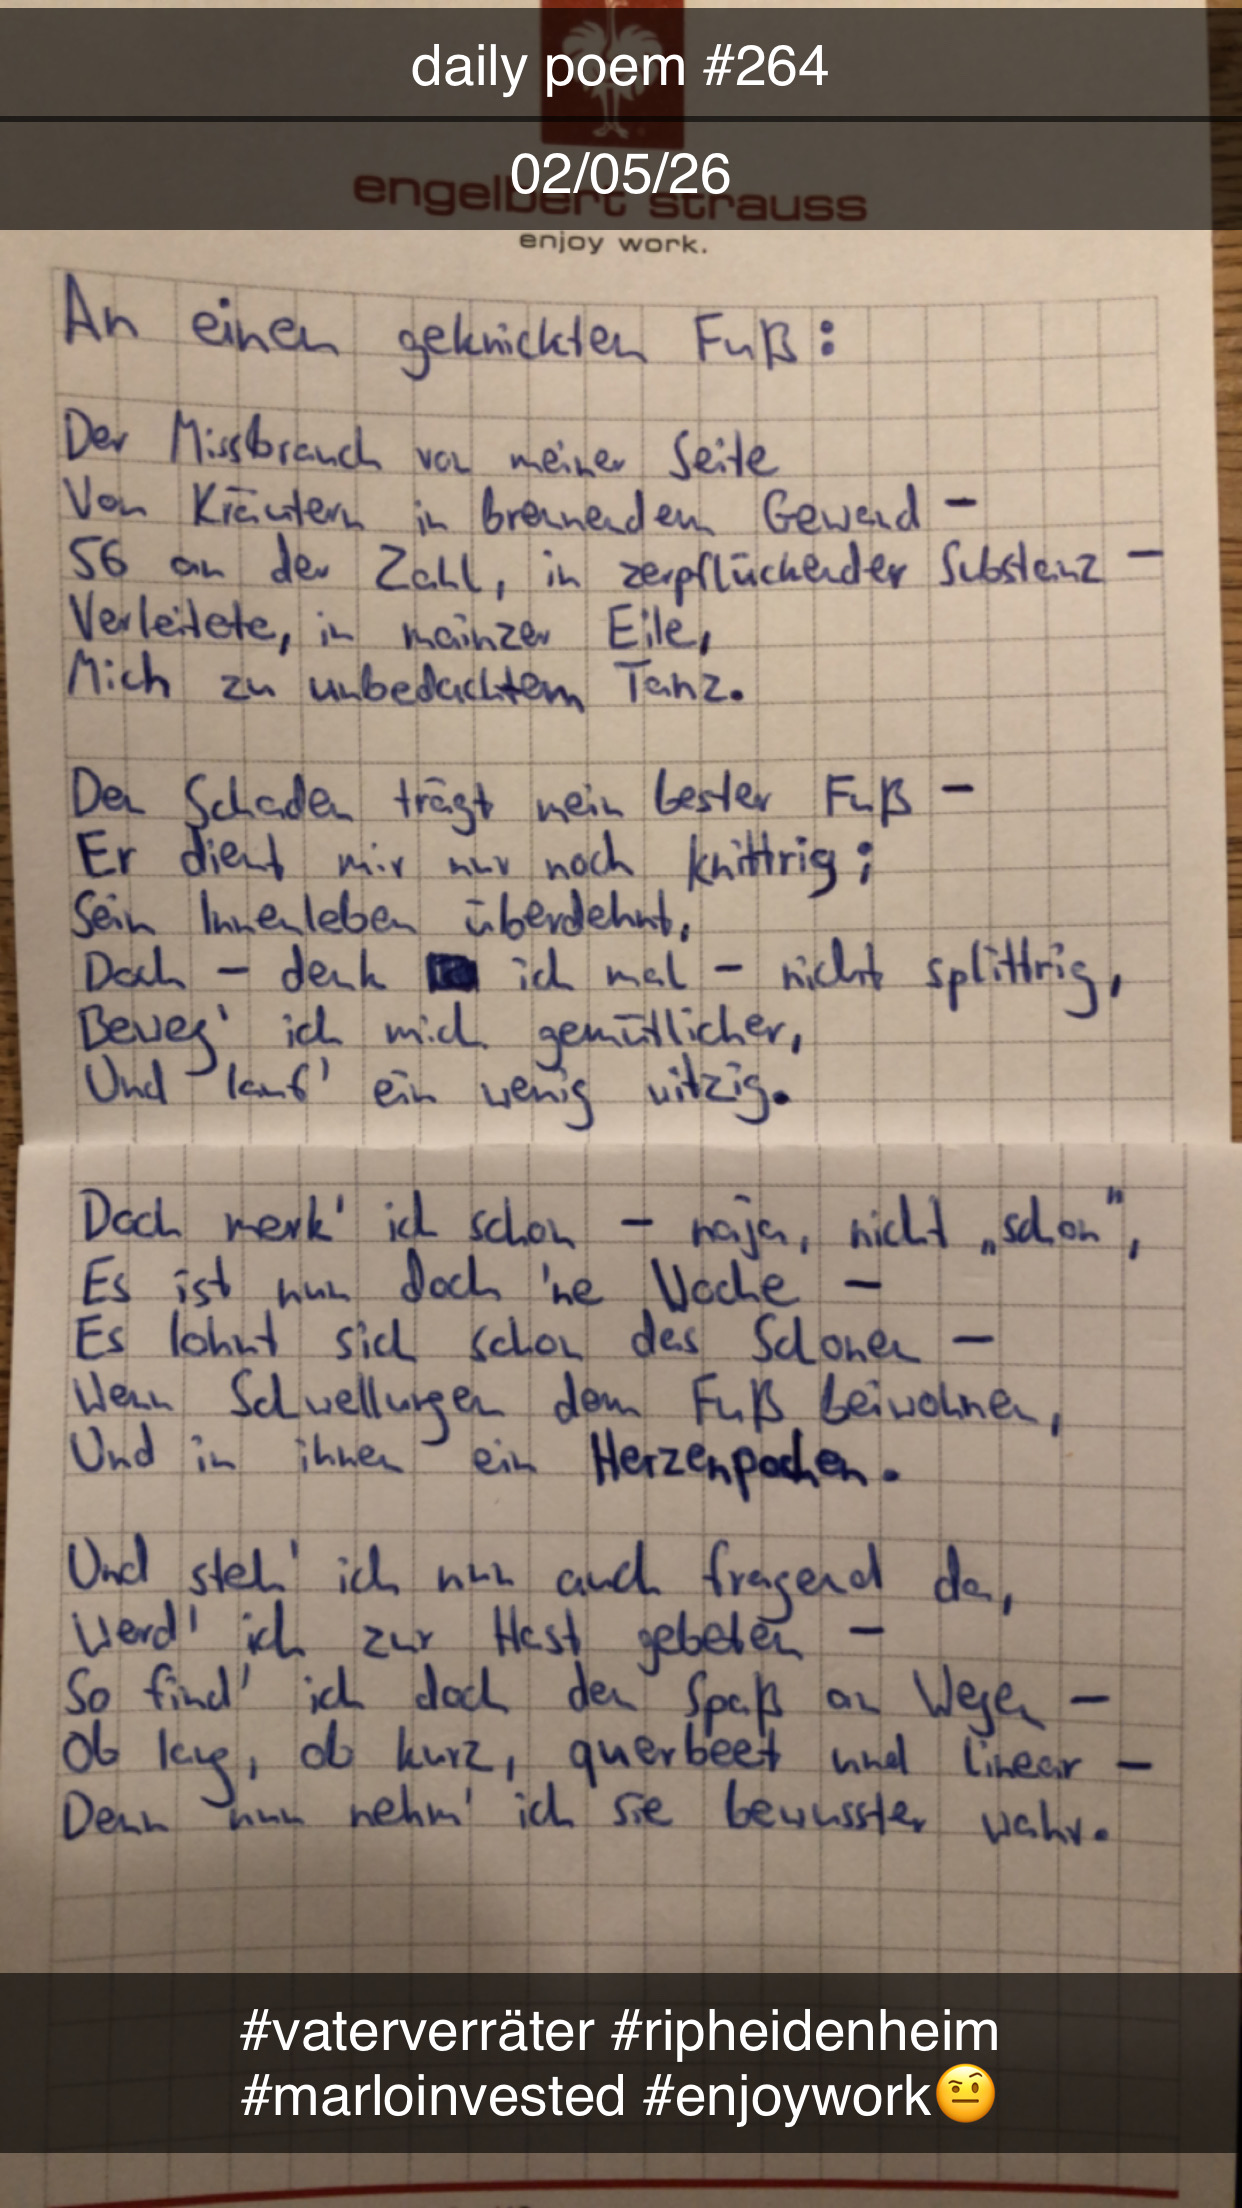 daily poem #264
02/05/26
engelbert strauss
enjoy work.
An einen geknickten Fuß:
Der Missbrauch von meiner Seite
Von Kräutern in brennendem Gewand –
56 an der Zahl, in zerpflückender Substanz –
Verleitete, in mainzer Eile,
Mich zu unbedachtem Tanz.
Den Schaden trägt mein bester Fuß –
Er dient mir nur noch knittrig;
Sein Innenleben überdehnt,
Doch – denk ich mal – nicht splittrig,
Beweg' ich mich gemütlicher,
Und lauf' ein wenig witzig.
Doch merk' ich schon – naja, nicht „schon",
Es ist nun doch 'ne Woche –
Es lohnt sich schon das Schonen –
Wenn Schwellungen dem Fuß beiwohnen,
Und in ihnen ein Herzenpochen.
Und steh' ich nun auch fragend da,
Werd' ich zur Hast gebeten –
So find' ich doch den Spaß an Wegen –
Ob lang, ob kurz, querbeet und linear –
Denn nun nehm' ich sie bewusster wahr.
#vaterverräter #ripheidenheim
#marloinvested #enjoywork🤨